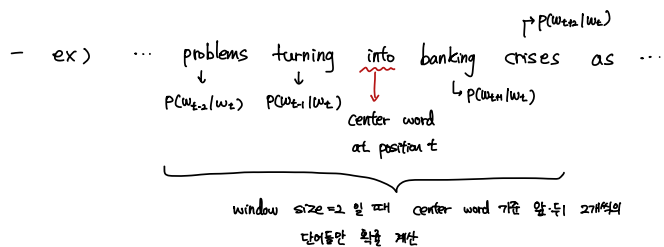 →P(wt+2|wt)
- ex) ... problems turning into banking crises as ...
P(wt-2|wt) P(wt-1|wt) P(wt+1|wt)
center word
at position t
window size=2 일 때 center word 기준 앞·뒤 2개씩의
단어들만 확률 계산